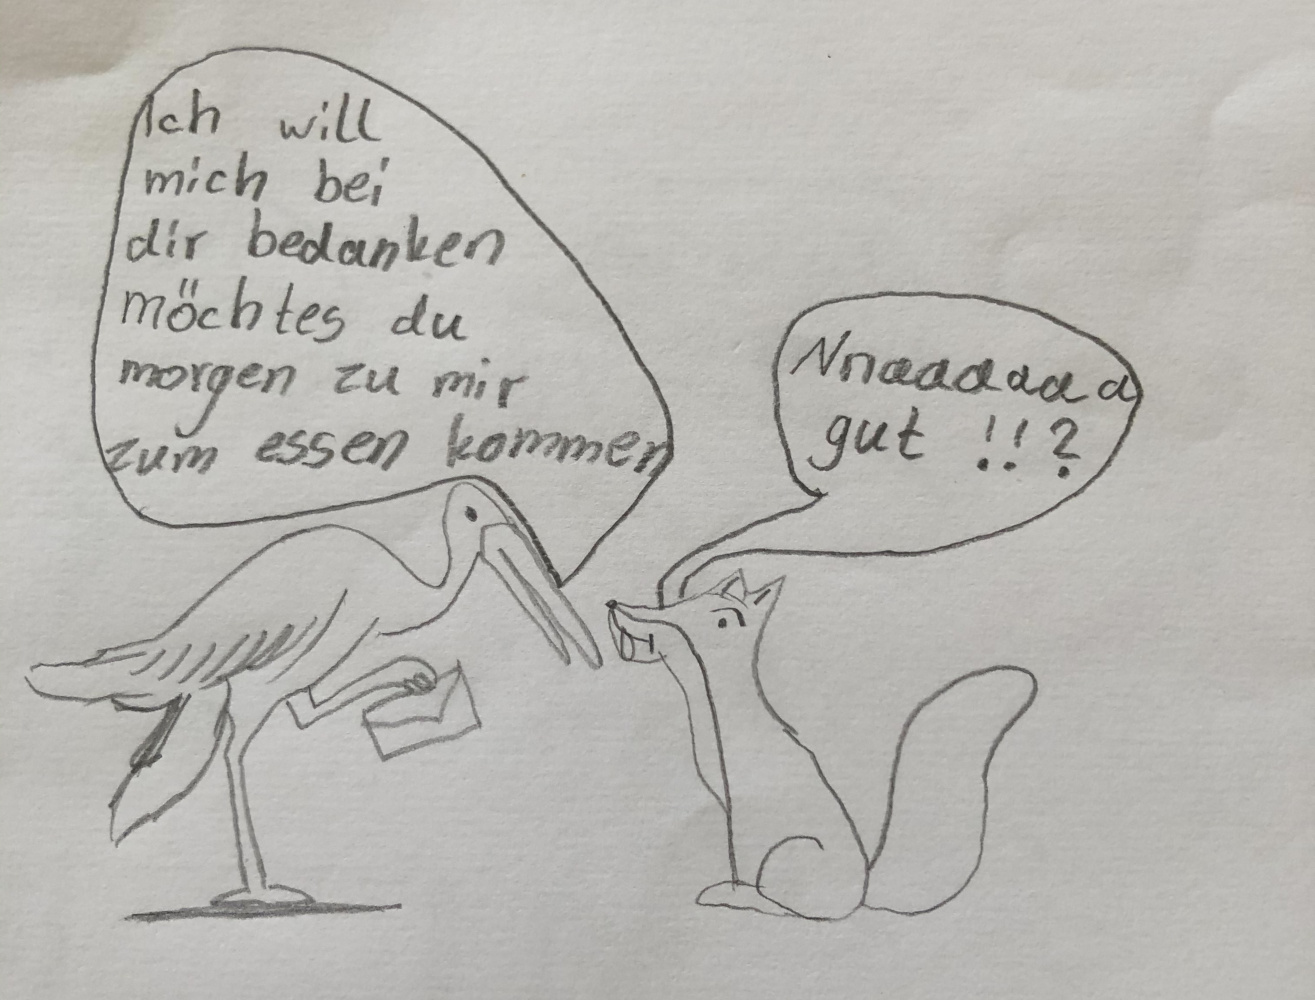 Ich will
mich bei
dir bedanken
möchtes du
morgen zu mir
zum essen kommen
Nnaaaaaa
gut !!?